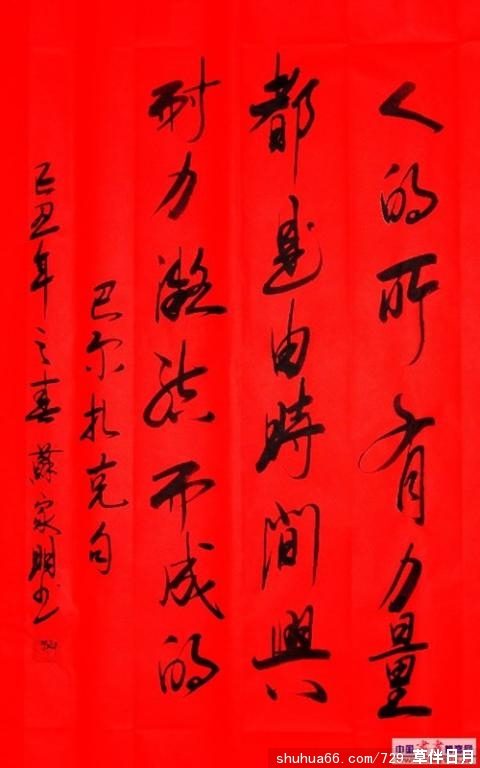 人的所有力量
都是由時間與
耐力凝結而成的
巴尔扎克句
己丑年之春 蘇家明书
中国
shuhua66.com/729 草伴日月